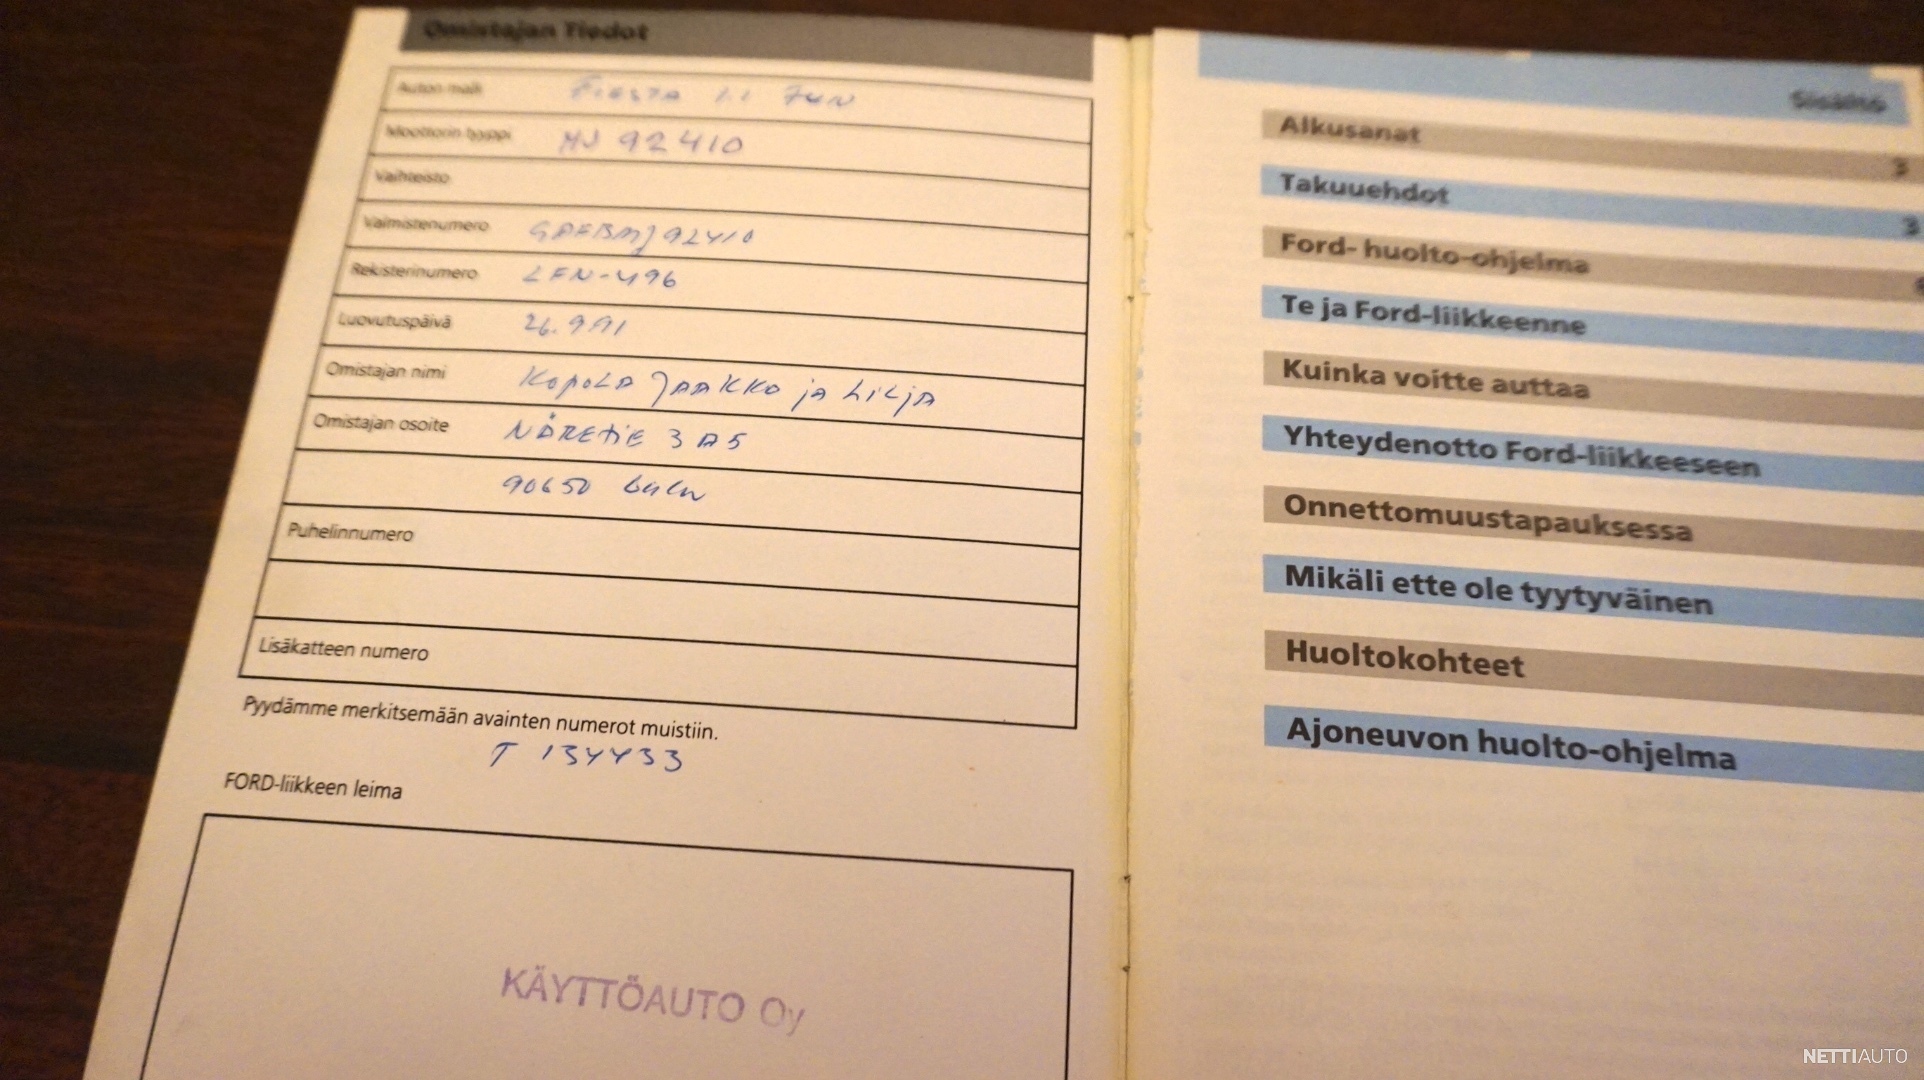 Omistajan Tiedot
Auton malli Fiesta 1.1 JUN
Moottorin tyyppi MJ 92410
Vaihteisto
Valmistenumero GAFBMJ92410
Rekisterinumero LFN-496
Luovutuspäivä 26.9.91
Omistajan nimi KOPOLA JAAKKO ja LILJA
Omistajan osoite NÄRETIE 3 A5
90650 Oulu
Puhelinnumero
Lisäkatteen numero
Pyydämme merkitsemään avainten numerot muistiin.
T 134433
FORD-liikkeen leima
KÄYTTÖAUTO Oy
Sisältö
Alkusanat 3
Takuuehdot 3
Ford- huolto-ohjelma
Te ja Ford-liikkeenne
Kuinka voitte auttaa
Yhteydenotto Ford-liikkeeseen
Onnettomuustapauksessa
Mikäli ette ole tyytyväinen
Huoltokohteet
Ajoneuvon huolto-ohjelma
NETTIAUTO